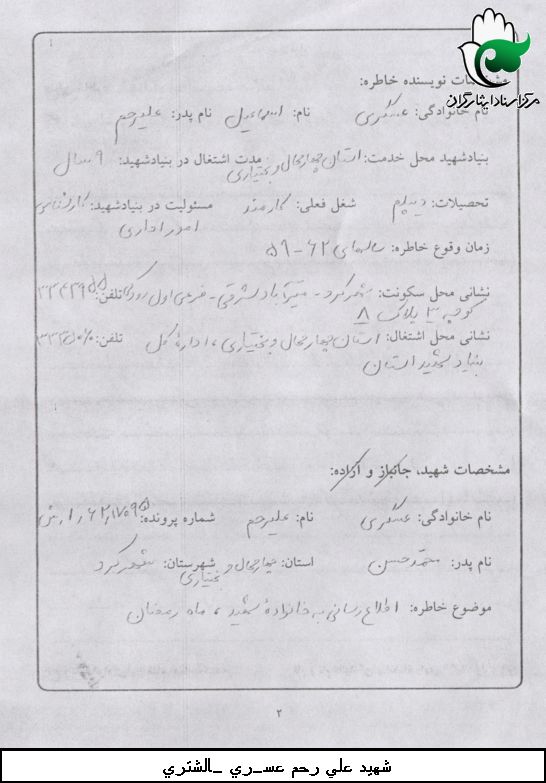 مرکز اسناد ایثارگران
مشخصات نویسنده خاطره:
نام خانوادگی: عسگری نام: اسماعیل نام پدر: علیرحم
بنیادشهید محل خدمت: استان چهارمحال و بختیاری مدت اشتغال در بنیادشهید: ۹ سال
تحصیلات: دیپلم شغل فعلی: کارمند مسئولیت در بنیادشهید: کارشناس
امور اداری
زمان وقوع خاطره: سالهای ۶۲ - ۵۹
نشانی محل سکونت: شهرکرد - میرآباد شرقی - فرعی اول تلفن:
کوچه ۳ پلاک ۸
نشانی محل اشتغال: استان چهارمحال و بختیاری، اداره کل تلفن:
بنیاد شهید استان
مشخصات شهید، جانباز و آزاده:
نام خانوادگی: عسگری نام: علیرحم شماره پرونده:
نام پدر: محمدحسن استان: چهارمحال و بختیاری شهرستان: شهرکرد
موضوع خاطره: اطلاع رسانی به خانواده شهید، ماه رمضان
۲
شهيد علي رحم عسـري ـالشتري